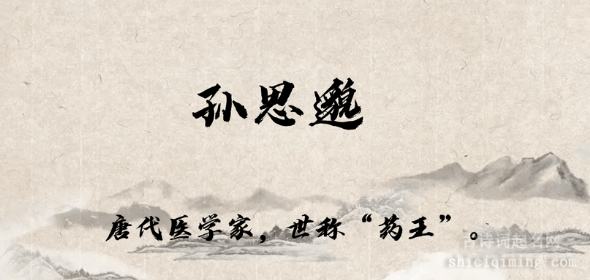 孙思邈
唐代医学家，世称“药王”。
古诗词起名网
shiciqiming.com